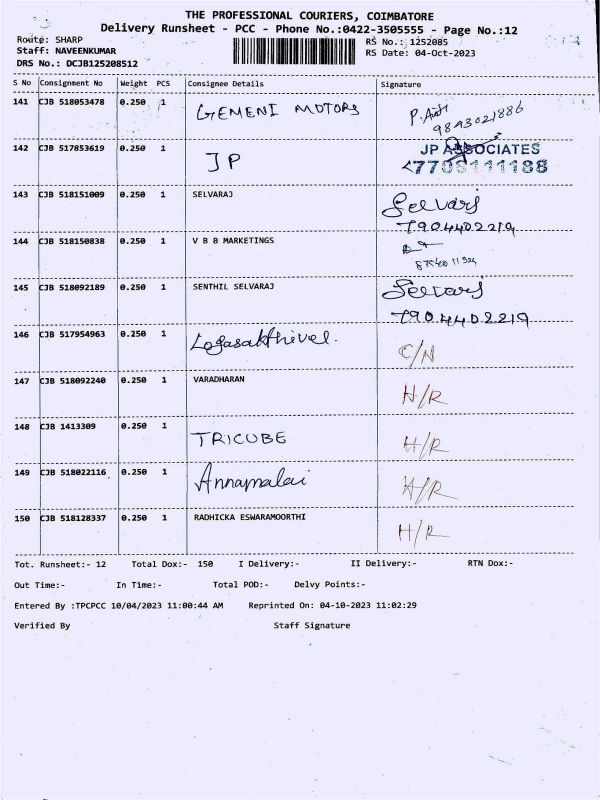 THE PROFESSIONAL COURIERS, COIMBATORE
Delivery Runsheet - PCC - Phone No.:0422-3505555 - Page No.:12
Route: SHARP
RS No.: 1252085
Staff: NAVEENKUMAR
RS Date: 04-Oct-2023
DRS No.: DCJB125208512
S No Consignment No Weight PCS Consignee Details Signature
141 CJB 518053478 0.250 1 GEMENI MOTORS
9843021886
142 CJB 517853619 0.250 1 JP JP ASSOCIATES
143 CJB 518151009 0.250 1 SELVARAJ Selvaraj
7904402219
144 CJB 518150838 0.250 1 V B B MARKETINGS
145 CJB 518092189 0.250 1 SENTHIL SELVARAJ Selvaraj
7904402219
146 CJB 517954963 0.250 1 Logasakthivel. C/N
147 CJB 518092240 0.250 1 VARADHARAN H/R
148 CJB 1413309 0.250 1 TRICUBE H/R
149 CJB 518022116 0.250 1 Annamalai H/R
150 CJB 518128337 0.250 1 RADHICKA ESWARAMOORTHI H/R
Tot. Runsheet:- 12 Total Dox:- 150 I Delivery:- II Delivery:- RTN Dox:-
Out Time:- In Time:- Total POD:- Delvy Points:-
Entered By :TPCPCC 10/04/2023 11:00:44 AM Reprinted On: 04-10-2023 11:02:29
Verified By Staff Signature